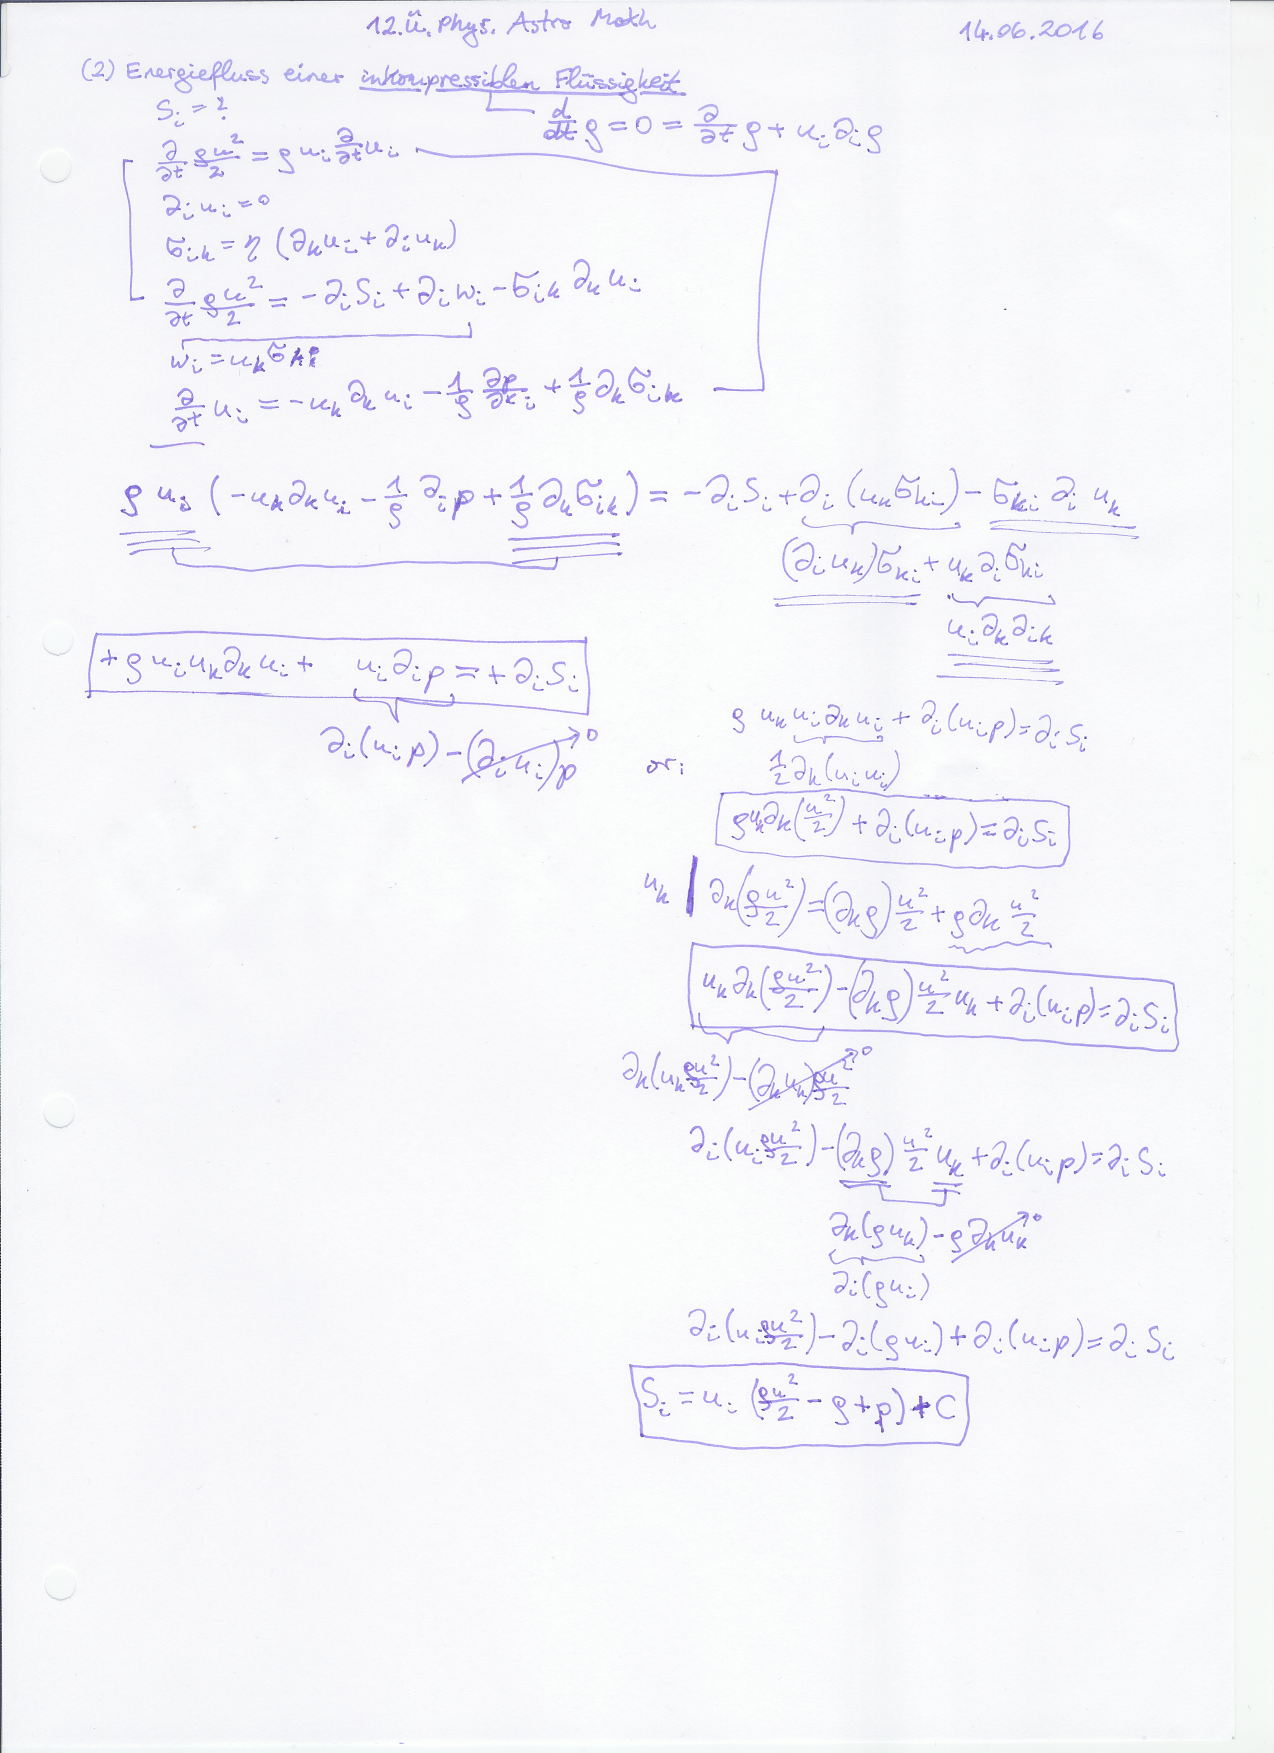 12.ü. Phys. Astro Math 14.06.2016
(2) Energiefluss einer inkompressiblen Flüssigkeit
S_i = ? d/dt ρ = 0 = ∂/∂t ρ + u_i ∂_i ρ
∂/∂t ρu²/2 = ρ u_i ∂/∂t u_i
∂_i u_i = 0
σ_ik = η (∂_k u_i + ∂_i u_k)
∂/∂t ρu²/2 = -∂_i S_i + ∂_i w_i - σ_ik ∂_k u_i
w_i = u_k σ_ki
∂/∂t u_i = -u_k ∂_k u_i - 1/ρ ∂p/∂x_i + 1/ρ ∂_k σ_ik
ρ u_i (-u_k ∂_k u_i - 1/ρ ∂_i p + 1/ρ ∂_k σ_ik) = -∂_i S_i + ∂_i (u_k σ_ki) - σ_ki ∂_i u_k
(∂_i u_k) σ_ki + u_k ∂_i σ_ki
u_i ∂_k ∂_ik
+ ρ u_i u_k ∂_k u_i + u_i ∂_i p = + ∂_i S_i
∂_i (u_i p) - (∂_i u_i) p → 0
or: ρ u_k u_i ∂_k u_i + ∂_i (u_i p) = ∂_i S_i
1/2 ∂_k (u_i u_i)
ρ u_k ∂_k (u²/2) + ∂_i (u_i p) = ∂_i S_i
u_k | ∂_k (ρu²/2) = (∂_k ρ) u²/2 + ρ ∂_k u²/2
u_k ∂_k (ρu²/2) - (∂_k ρ) u²/2 u_k + ∂_i (u_i p) = ∂_i S_i
∂_k (u_k ρu²/2) - (∂_k u_k) ρu²/2 → 0
∂_i (u_i ρu²/2) - (∂_k ρ) u²/2 u_k + ∂_i (u_i p) = ∂_i S_i
∂_k (ρ u_k) - ρ ∂_k u_k → 0
∂_i (ρ u_i)
∂_i (u_i ρu²/2) - ∂_i (ρ u_i) + ∂_i (u_i p) = ∂_i S_i
S_i = u_i (ρu²/2 - ρ + p) + C